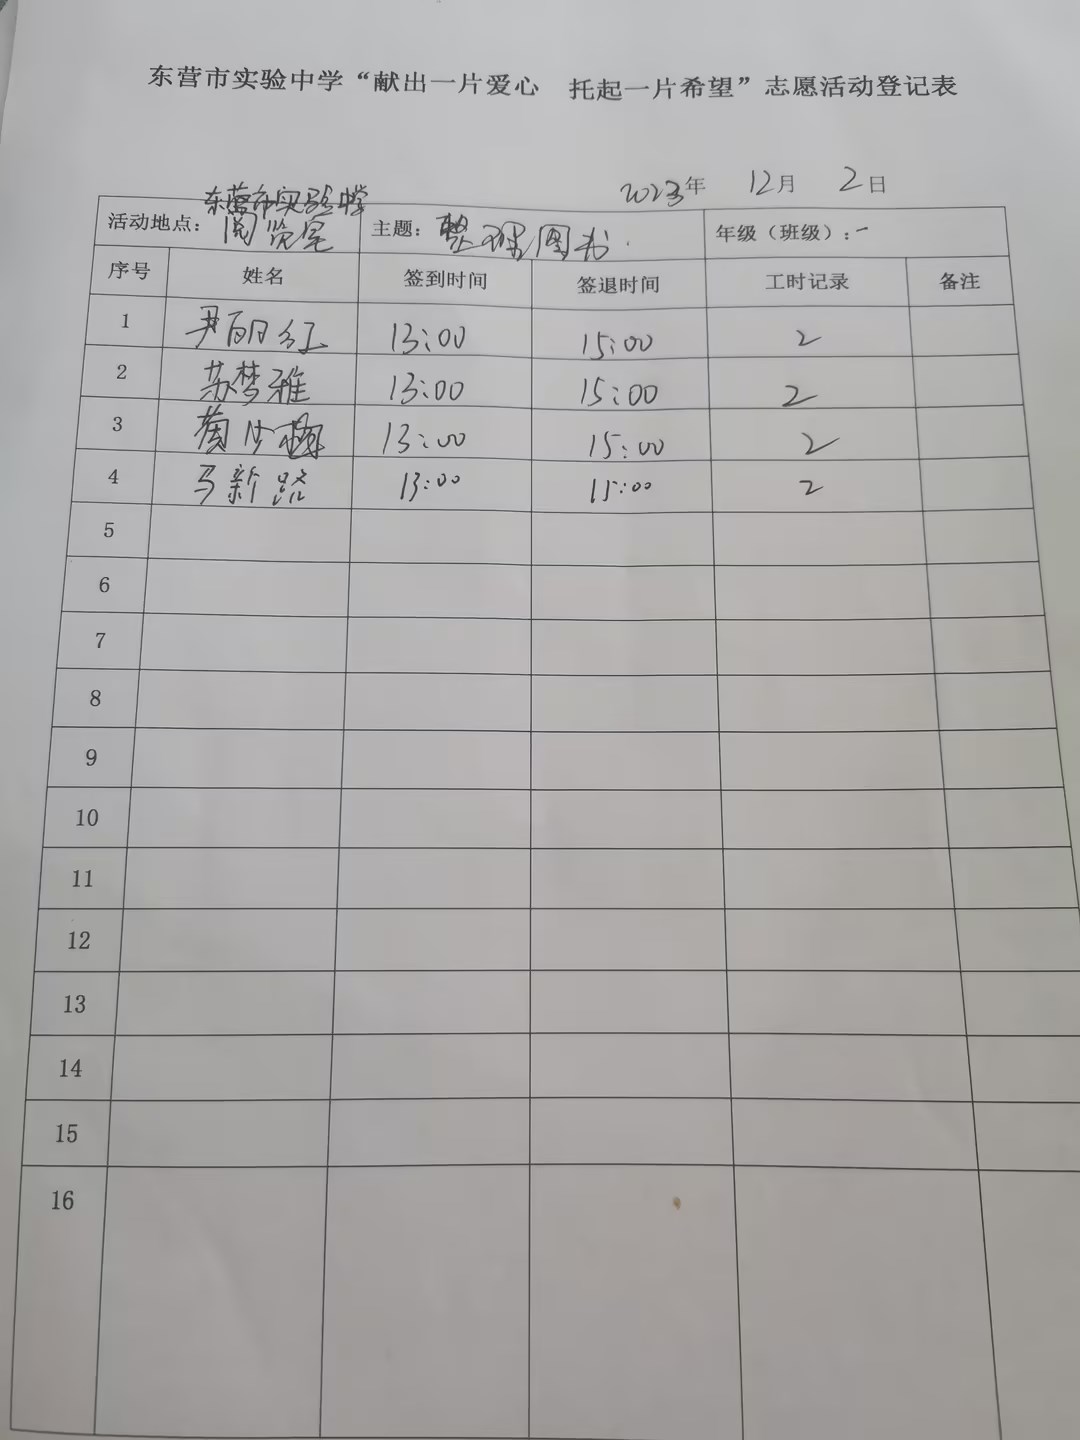 东营市实验中学“献出一片爱心 托起一片希望”志愿活动登记表
2023年 12月 2日
活动地点: 东营市实验中学阅览室 主题: 整理图书 年级（班级）: 一
序号 姓名 签到时间 签退时间 工时记录 备注
1 尹丽红 13:00 15:00 2
2 苏梦雅 13:00 15:00 2
3 13:00 15:00 2
4 马新路 13:00 15:00 2
5
6
7
8
9
10
11
12
13
14
15
16